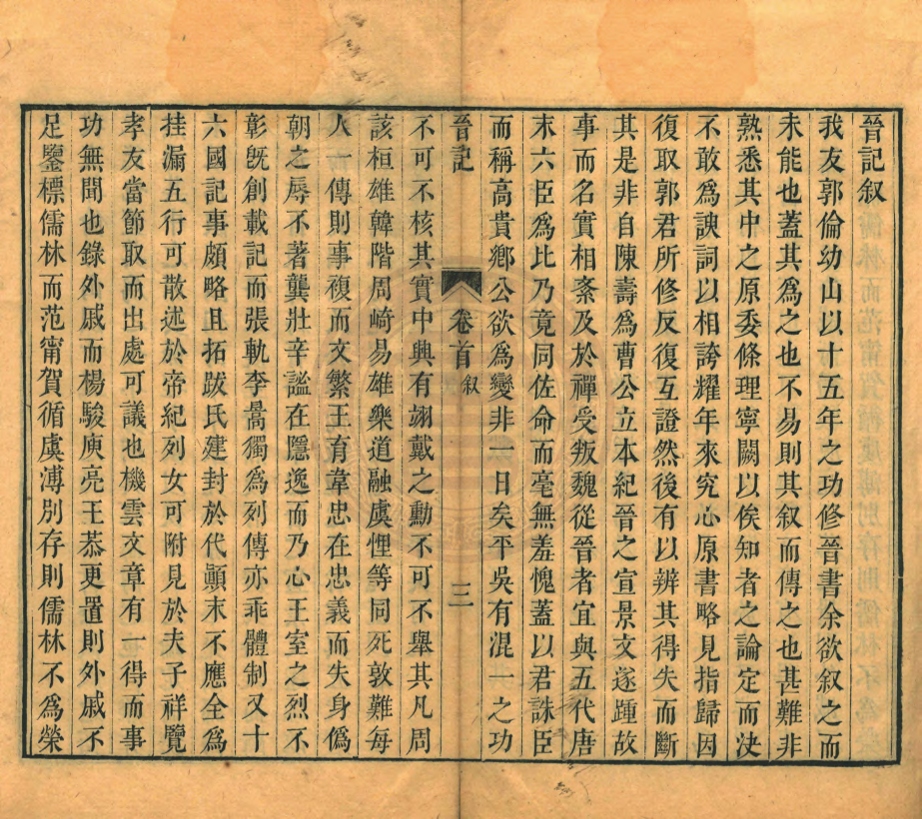 晉記叙
我友郭倫幼山以十五年之功修晉書余欲叙之而
未能也蓋其為之也不易則其叙而傳之也甚難非
熟悉其中之原委條理寧闕以俟知者之論定而決
不敢為諛詞以相誇耀年來究心原書略見指歸因
復取郭君所修反復互證然後有以辨其得失而斷
其是非自陳壽為曹公立本紀晉之宣景文遂踵故
事而名實相紊及於禪受叛魏從晉者宜與五代唐
末六臣為比乃竟同佐命而毫無羞愧蓋以君誅臣
而稱高貴鄉公欲為變非一日矣平吳有混一之功
晉記
卷首
叙
三
不可不核其實中興有翊戴之勳不可不舉其凡周
該桓雄韓階周崎易雄樂道融虞悝等同死敦難每
人一傳則事複而文繁王育韋忠在忠義而失身偽
朝之辱不著龔壯辛謐在隱逸而乃心王室之烈不
彰旣創載記而張軌李暠獨為列傳亦乖體制又十
六國記事頗略且拓跋氏建封於代顚末不應全為
挂漏五行可散述於帝紀列女可附見於夫子祥覽
孝友當節取而出處可議也機雲文章有一得而事
功無聞也錄外戚而楊駿庾亮王恭更置則外戚不
足鑒標儒林而范甯賀循虞溥別存則儒林不為榮